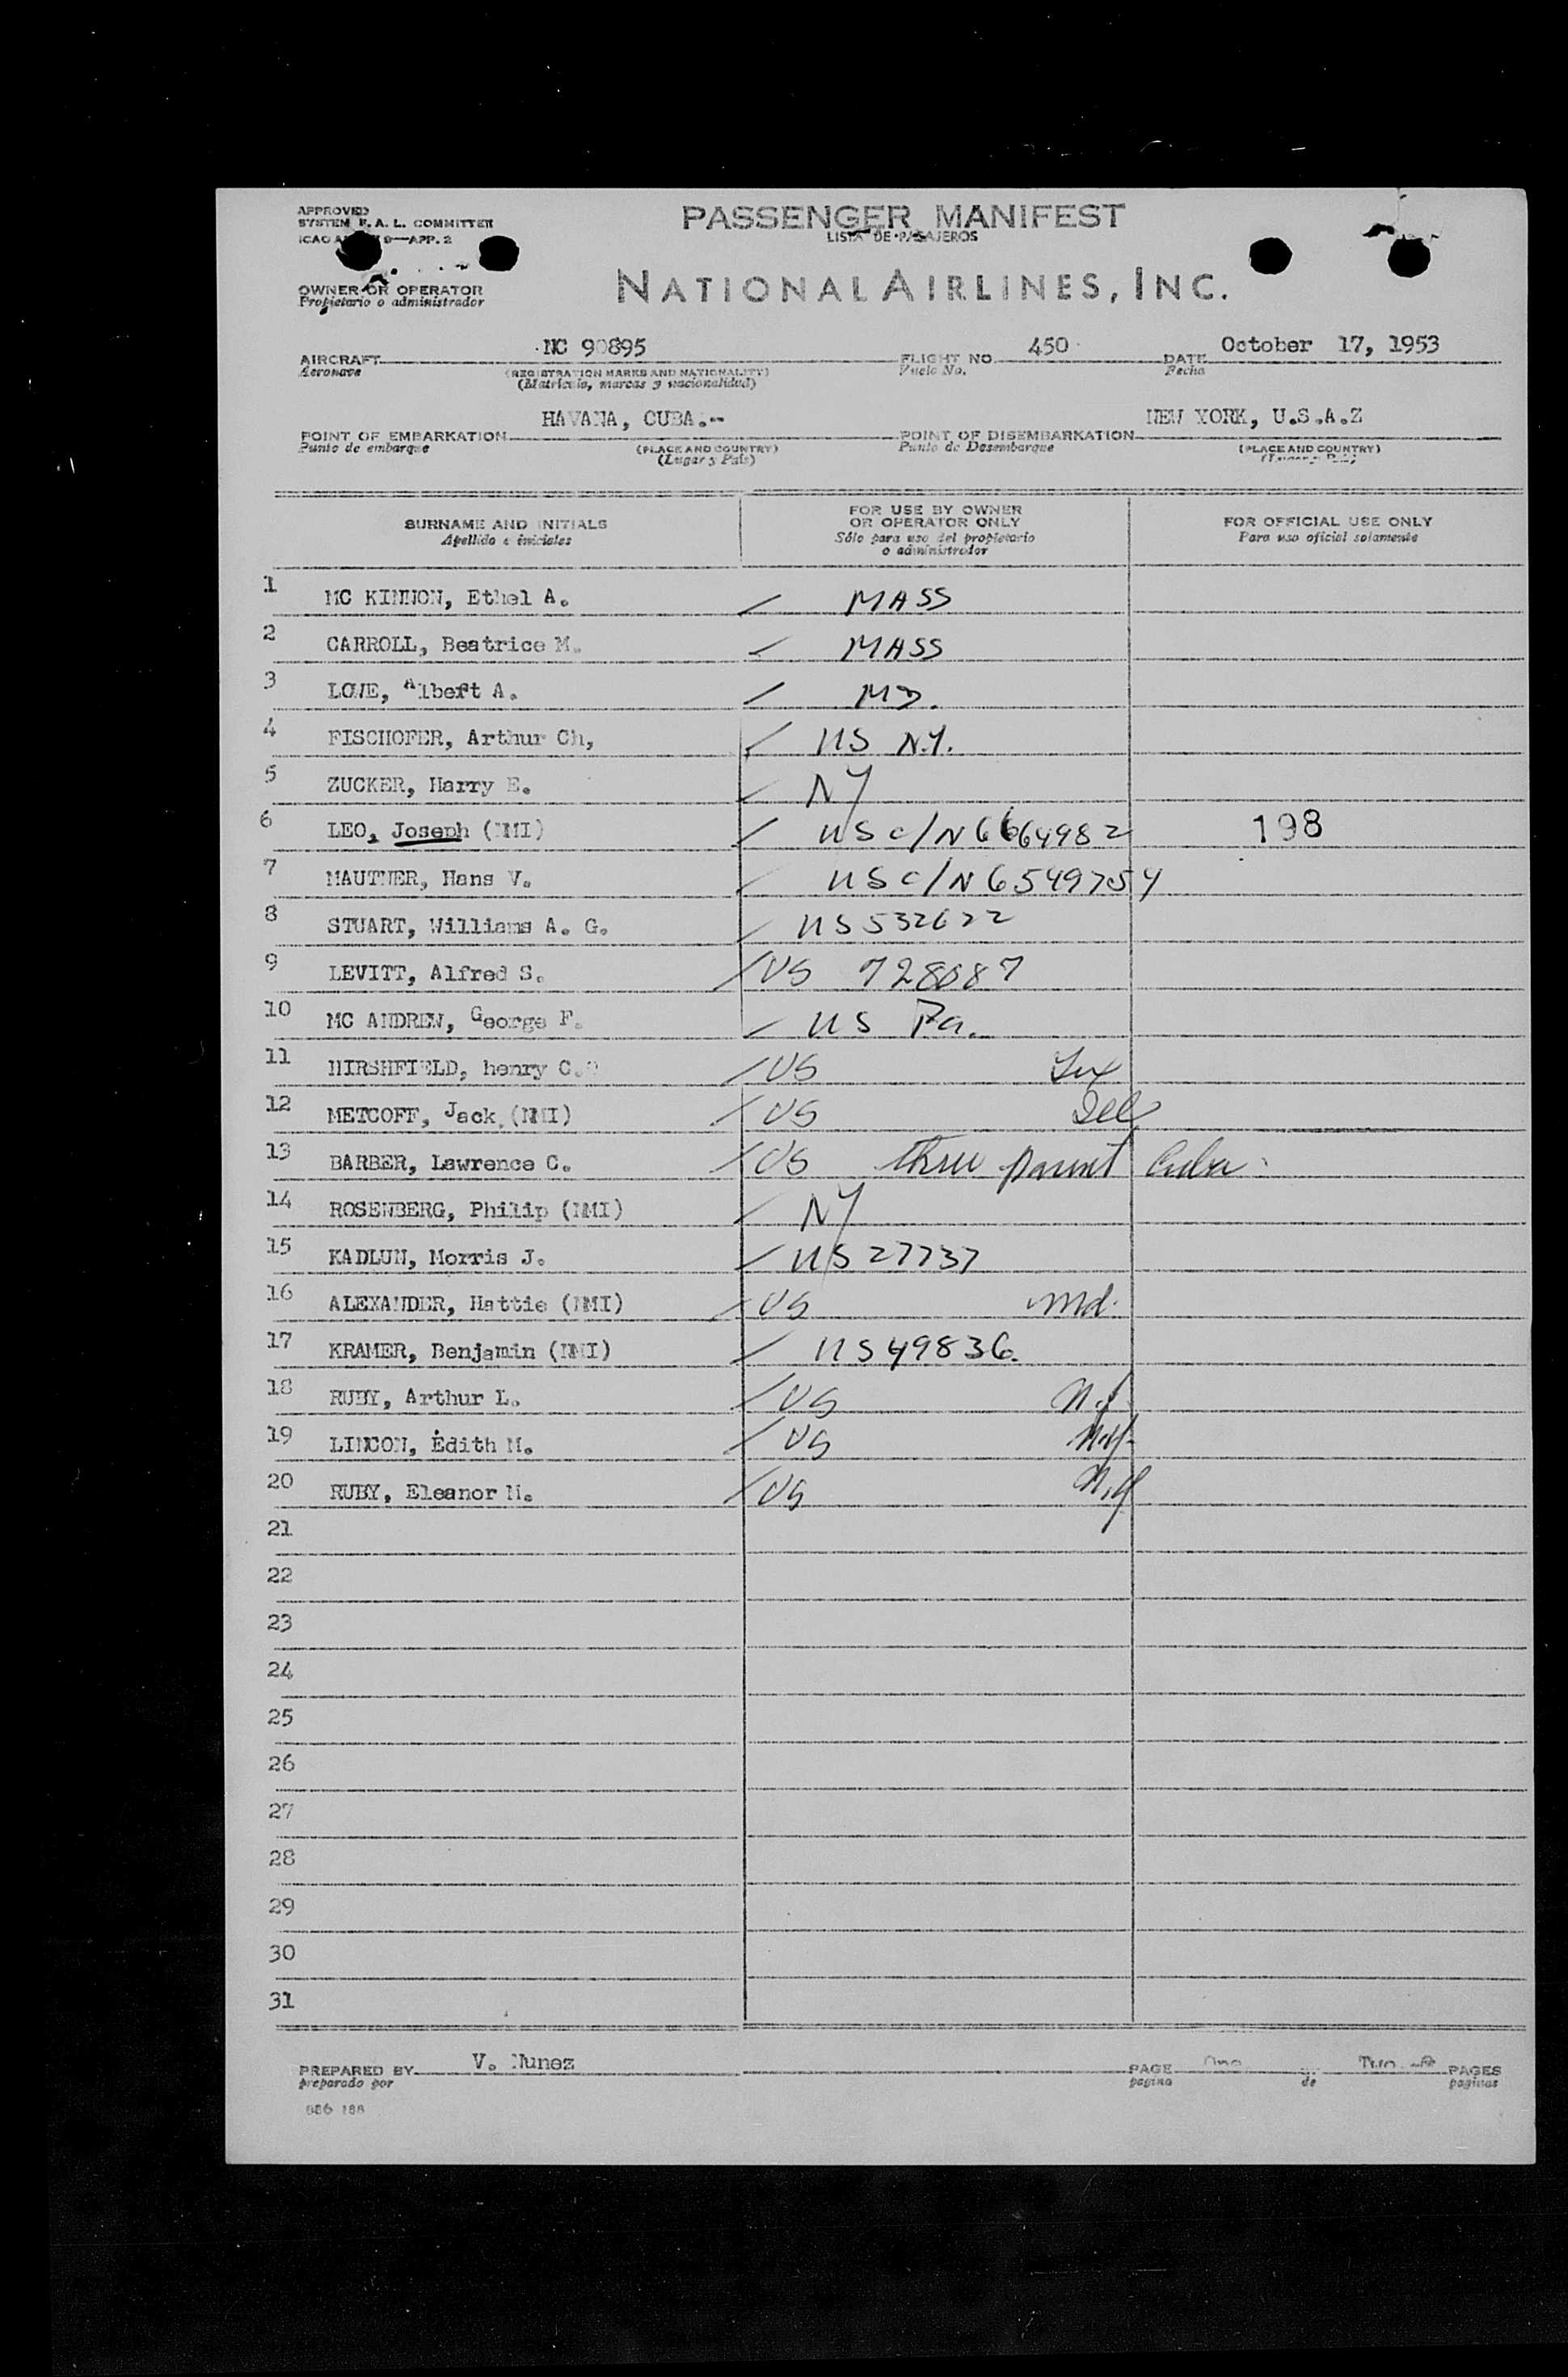 APPROVED
SYSTEM F. A. L. COMMITTEE
ICAO 9—APP. 2
PASSENGER MANIFEST
LISTA DE PASAJEROS
OWNER OR OPERATOR
Propietario o administrador
NATIONAL AIRLINES, INC.
AIRCRAFT NC 90895 FLIGHT NO. 450 DATE October 17, 1953
Aeronave (REGISTRATION MARKS AND NATIONALITY) Vuelo No. Fecha
(Matrícula, marcas y nacionalidad)
POINT OF EMBARKATION HAVANA, CUBA.-- POINT OF DISEMBARKATION NEW YORK, U.S.A.Z
Punto de embarque (PLACE AND COUNTRY) Punto de Desembarque (PLACE AND COUNTRY)
(Lugar y País)
SURNAME AND INITIALS
Apellido e iniciales
FOR USE BY OWNER
OR OPERATOR ONLY
Sólo para uso del propietario
o administrador
FOR OFFICIAL USE ONLY
Para uso oficial solamente
1 MC KINNON, Ethel A. / MASS
2 CARROLL, Beatrice M. / MASS
3 LOWE, Albert A. / MD.
4 FISCHOFER, Arthur Ch, / US N.Y.
5 ZUCKER, Harry E. / NY
6 LEO, Joseph (NMI) / US c/N 6664982 198
7 MAUTNER, Hans V. / US c/N 6549754
8 STUART, Williams A. G. / US 532622
9 LEVITT, Alfred S. / US 728087
10 MC ANDREW, George F. / US Pa.
11 HIRSHFIELD, henry C. / US
12 METCOFF, Jack (NMI) / US
13 BARBER, Lawrence C. / US thru parent Cuba
14 ROSENBERG, Philip (NMI) / NY
15 KADLUN, Morris J. / US 27737
16 ALEXANDER, Hattie (NMI) / US Md.
17 KRAMER, Benjamin (NMI) / US 49836.
18 RUBY, Arthur L. / US N.Y
19 LINCON, Edith M. / US N.Y.
20 RUBY, Eleanor M. / US N.Y
21
22
23
24
25
26
27
28
29
30
31
PREPARED BY V. Nunez PAGE One Two PAGES
preparado por pagina de paginas